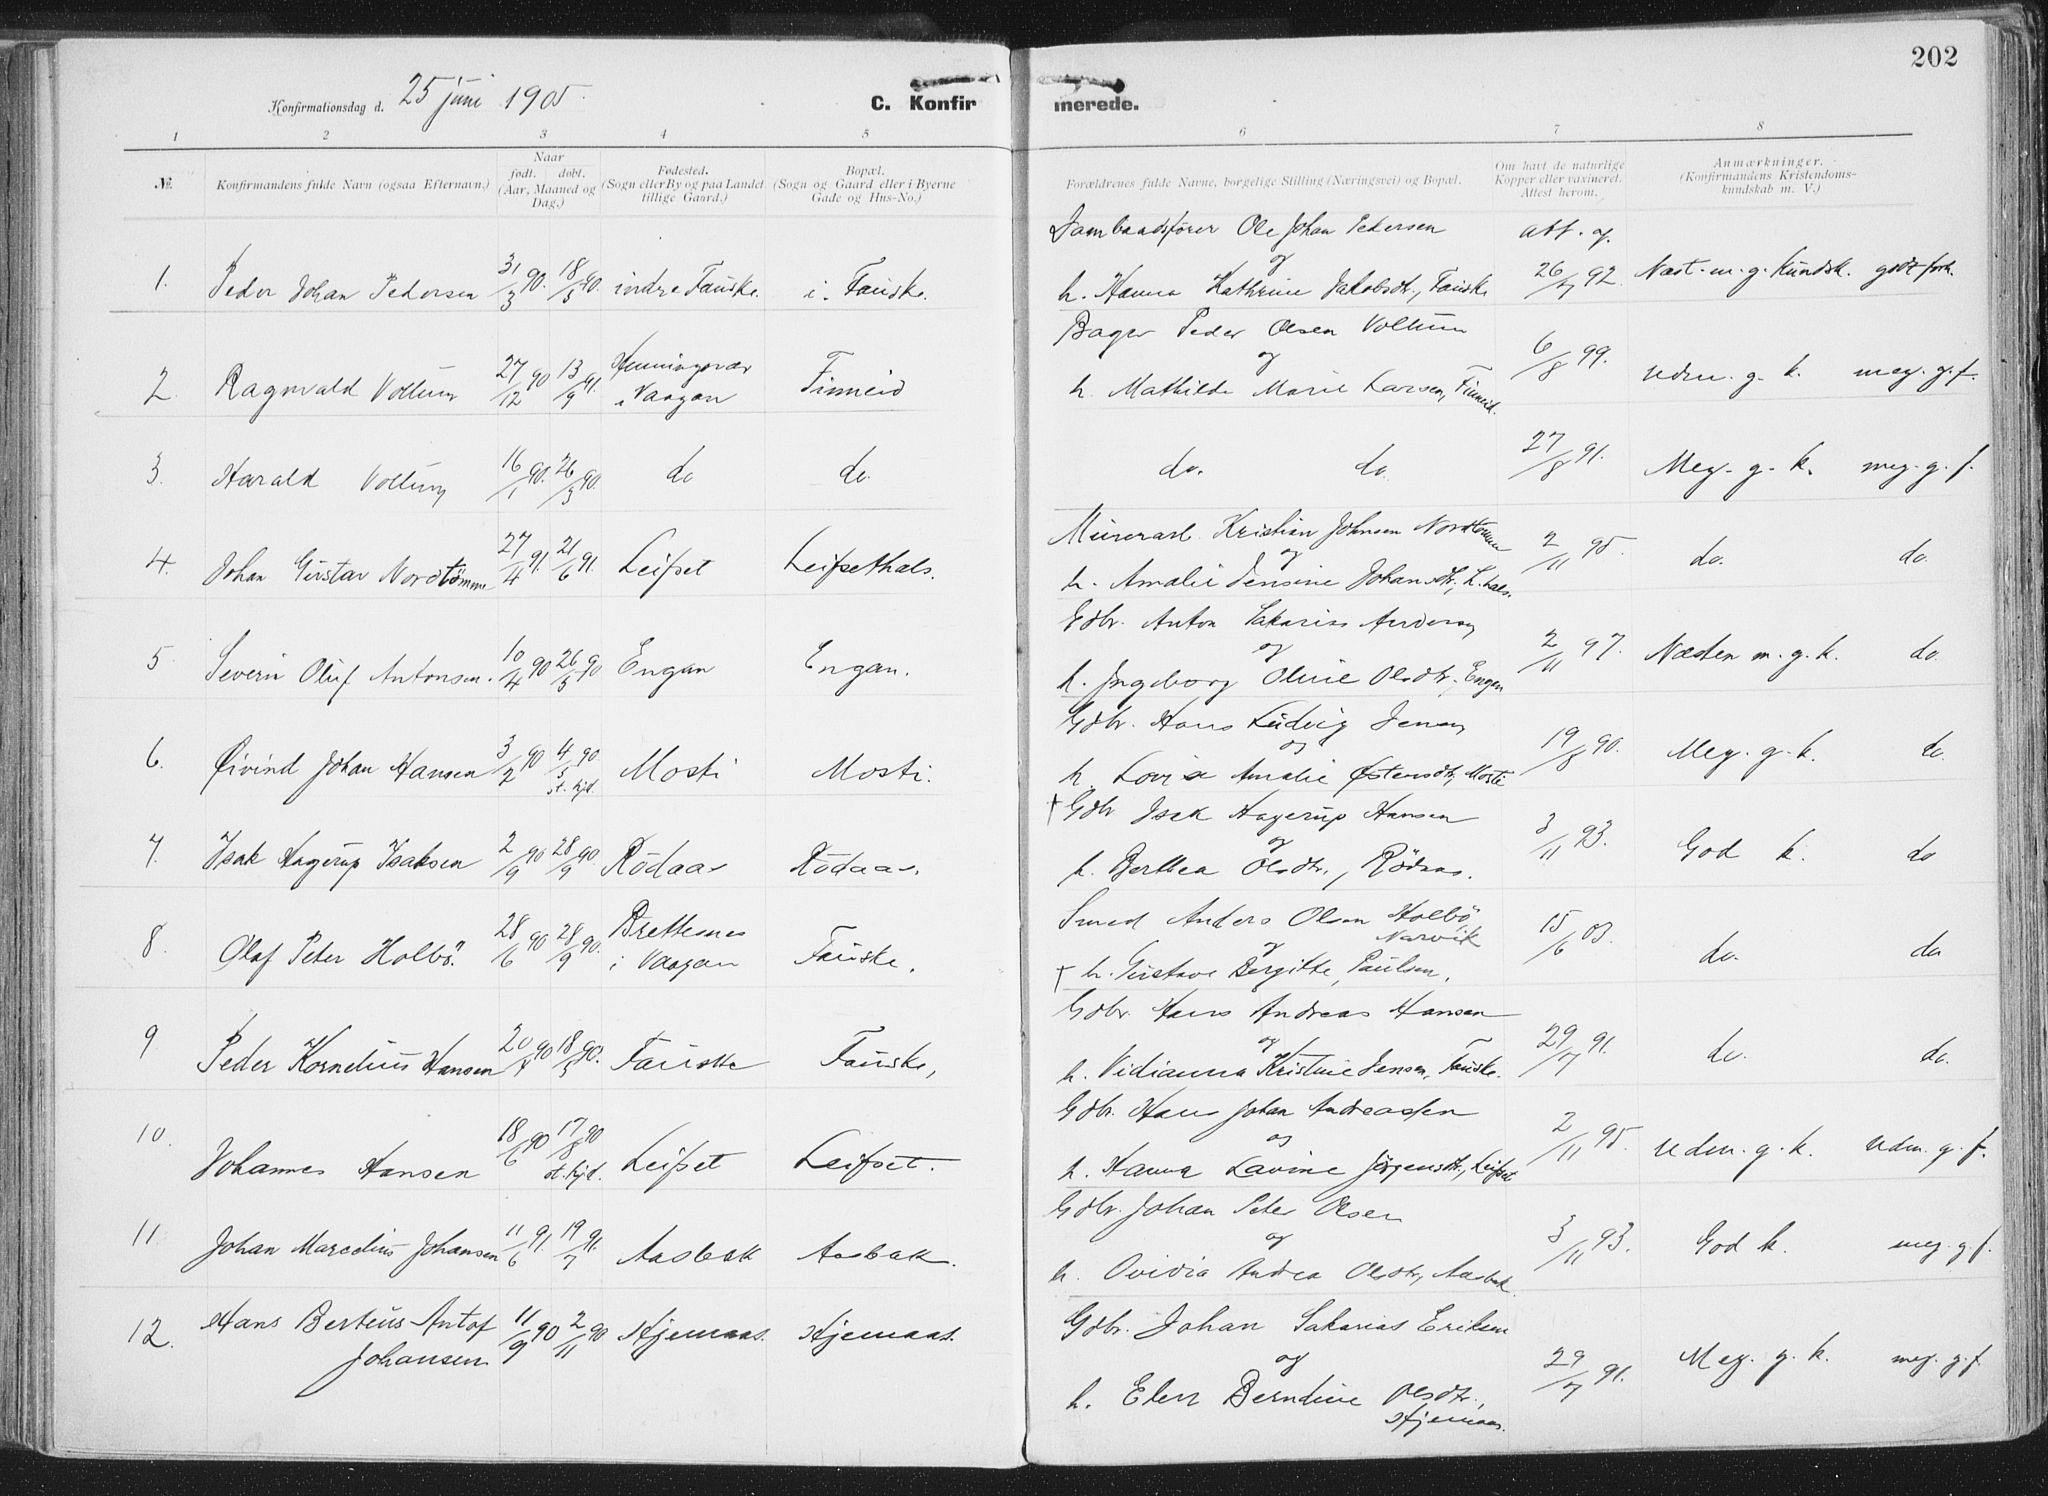 202
Konfirmationsdag d. 25 juni 1905.
C. Konfirmerede.
1 2 3 4 5 6 7 8
№. Konfirmandens fulde Navn (ogsaa Efternavn.) Naar født. døbt. (Aar, Maaned og Dag.) Fødested. (Sogn eller By og paa Landet tillige Gaard.) Bopæl. (Sogn og Gaard eller i Byerne Gade og Hus-No.) Forældrenes fulde Navne, borgelige Stilling (Næringsvei) og Bopæl. Om havt de naturlige Kopper eller vaxineret. Attest herom. Anmærkninger. (Konfirmandens Kristendomskundskab m. V.)
1. Peder Johan Pedersen 31/3 90. 18/5 90. indre Fauske. i. Fauske. Ole Johan Pedersen og h. Hanna Kathrine Jakobsdtr., Fauske att. af. 26/7 92. Næst. m. g. kundsk. godt forh.
2. Ragnvald Vollum 27/12 90 13/9 91. Henningsvær i Vaagan Finneid Bager Peder Olsen Vollum og h. Mathilde Marie Larsen, Finneid. 6/8 99. udm. g. k. meg. g. f.
3. Harald Vollum 16/1 90. 26/3 90. do do. do. do. 27/8 91. Meg. g. k. meg. g. f.
4. Johan Gustav Nordtömme 27/4 91. 21/6 91. Leifset Leifsethals. Murerarb. Kristian Johnsen Nordtömme og h. Amalie Jensine Johansdtr., L. hals. 2/11 95. do. do.
5. Severin Oluf Antonsen. 10/4 90 26/5 90 Engan Engan. Gdbr. Anton Sakarias Andersen og h. Ingeborg Oline Olsdtr., Engan 2/11 97. Næsten m. g. k. do.
6. Øivind Johan Hansen 3/2 90 4/5 90 st. hjd. Mosti Mosti. Gdbr. Hans Ludvig Jensen og h. Lovise Amalie Østensdtr, Mosti 19/8 90. Meg. g. k. do.
7. Isak Hagerup Isaksen 2/9 90 28/9 90. Rödaas Rödaas. † Gdbr Isak Hagerup Hansen og h. Berthea Olsdtr., Rødaas. 3/11 93. God k. do
8. Olaf Peter Holbö. 28/6 90 28/9 90. Brettesnes i Vaagan Fauske. Smed Anders Olsen Holbö, Narvik og † h. Gustava Bergitte Paulsen. 15/6 03. do. do
9 Peder Kornelius Hansen 20/4 90 18/5 90. Fauske Fauske, Gdbr. Hans Andreas Hansen og h. Vidianna Kristine Jensen, Fauske. 29/7 91. do. do.
10. Johannes Hansen 18/6 90 17/8 90 st. hjd. Leifset Leifset. Gdbr. Hans Johan Andreassen og h. Hanna Lavine Jørgensdtr., Leifset 2/11 95. udm. g. k. udm. g. f.
11. Johan Marcelius Johansen 11/6 91. 19/7 91. Aasbak Aasbak. Gdbr. Johan Peter Olsen og h. Ovidia Andrea Olsdtr, Aasbak. 3/11 93. God k. meg. g. f.
12. Hans Berteus Antof Johansen. 11/9 90 2/11 90 Hjemaas. Hjemaas. Gdbr. Johan Sakarias Eriksen og h. Elen Berndine Olsdtr., Hjemaas. 29/7 91. Meg. g. k. meg. g. f.